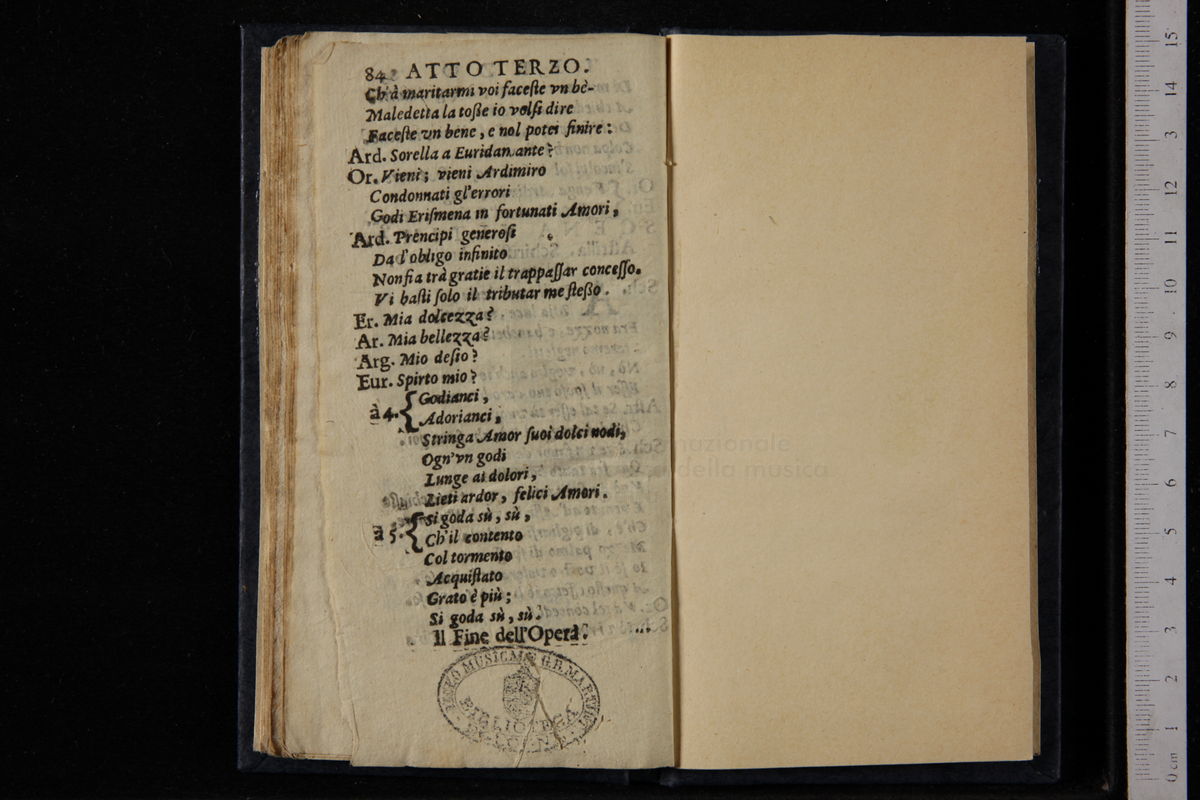 84 ATTO TERZO.
Ch'à maritarmi voi faceſte vn bè-
Maledetta la toſſe io volſi dire
Faceſte vn bene, e nol potei finire:
Ard. Sorella a Euridamante?
Or. Vieni; vieni Ardimiro
Condonnati gl'errori
Godi Eriſmena in fortunati Amori,
Ard. Prencipi generoſi
Da l'obligo infinito
Non ſia trà gratie il trappaſſar conceſſo.
Vi baſti ſolo il tributar me ſteſſo.
Er. Mia dolcezza?
Ar. Mia bellezza?
Arg. Mio deſio?
Eur. Spirto mio?
à 4. { Godianci,
Adorianci,
Stringa Amor ſuoi dolci nodi,
Ogn'vn godi
Lunge ai dolori,
Lieti ardor, felici Amori.
à 5. { Si goda sù, sù,
Ch'il contento
Col tormento
Acquiſtato
Grato è più;
Si goda sù, sù.
Il Fine dell'Opera.
MUSICALE G.B. MARTINI
BIBLIOTECA
nazionale
della musica
0 cm 1 2 3 4 5 6 7 8 9 10 11 12 3 14 15